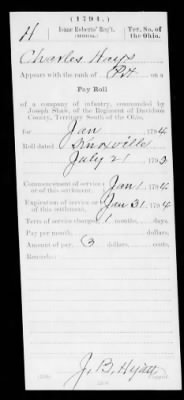 (1794.)
H
Isaac Roberts' Reg't,
Ter. So. of
the Ohio.
Charles Hays
Appears with the rank of Pvt on a
Pay Roll
of a company of infantry, commanded by
Joseph Shaw, of the Regiment of Davidson
County, Territory South of the Ohio,
for Jan , 1794
Roll dated Knoxville
July 21 , 179
Commencement of service or of this settlement, Jan 1 , 1794
Expiration of service or of this settlement, Jan 31 , 1794
Term of service charged, 1 months, days.
Pay per month, dollars, cents.
Amount of pay, 3 dollars, cents.
Remarks:
J. B. Hyatt
Copyist.